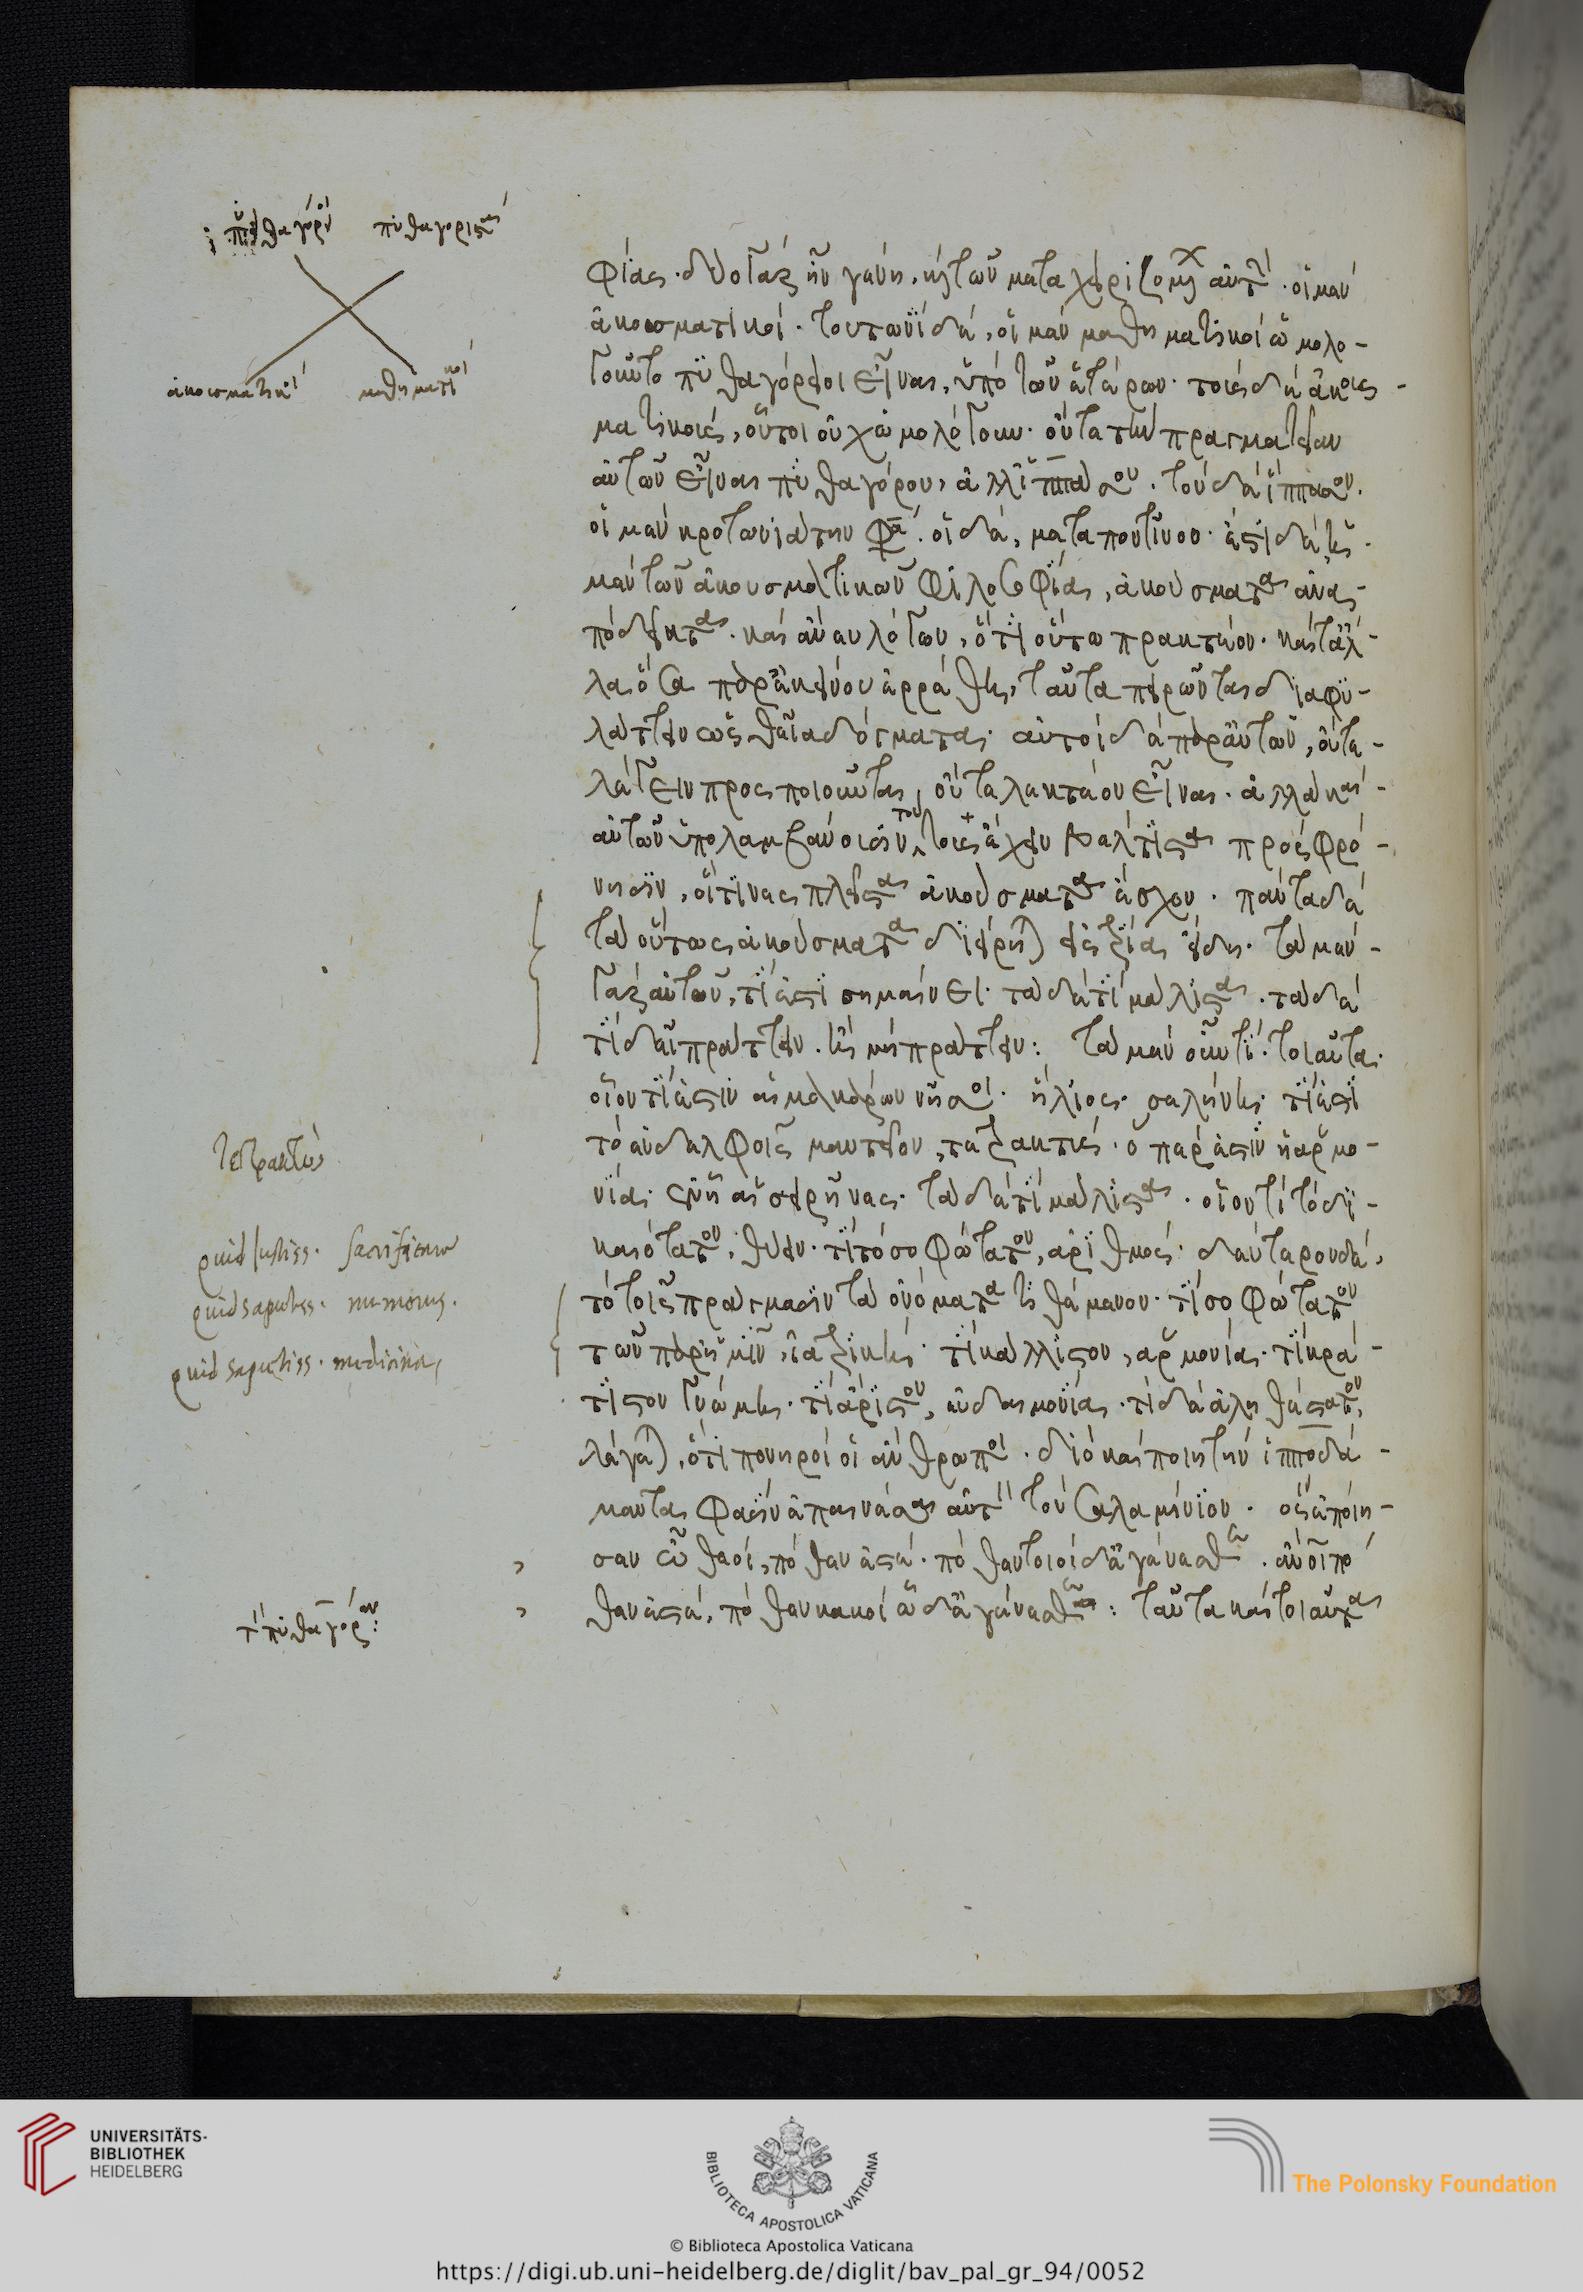 ἡ πυθαγόρου πυθαγορισταί
ἀκουσματικοί μαθηματικοί
φίας· δύο γὰρ ἦν γένη, καὶ τῶν μεταχειριζομένων αὐτήν· οἱ μὲν
ἀκουσματικοί· τουτωνὶ δὲ, οἱ μὲν μαθηματικοὶ ὡμολο-
γοῦντο πυθαγόρειοι εἶναι, ὑπὸ τῶν ἑτέρων· τοὺς δὲ ἀκους-
ματικοὺς, οὗτοι οὐχ ὡμολόγουν· οὔτε τὴν πραγματείαν
αὐτῶν εἶναι πυθαγόρου, ἀλλ' ἱππάσου. τὸν δὲ ἵππασον.
οἱ μὲν κροτωνιάτην φασί. οἱ δὲ, μεταποντῖνον· ἔστι δὲ ἡ
μὲν τῶν ἀκουσματικῶν φιλοσοφία, ἀκούσματα ἀνα-
πόδεικτα. καὶ ἄνευ λόγου, ὅτι οὕτω πρακτέον· καὶ τἄλ-
λα ὅσα παρ' ἐκείνου ἐρρέθη, ταῦτα πειρῶνται διαφυ-
λάττειν ὡς θεῖα δόγματα· αὐτοὶ δὲ παρ' αὑτῶν, οὔτε
λέγειν προσποιοῦνται, οὔτε λεκτέον εἶναι. ἀλλὰ καὶ
αὐτῶν ὑπολαμβάνουσιν τούτους ἔχειν βέλτιστα πρὸς φρό-
νησιν, οἵτινες πλεῖστα ἀκούσματα ἔσχον. πάντα δὲ
τὰ οὕτως ἀκούσματα διῄρηται εἰς τρία εἴδη· τὰ μὲν
γὰρ αὐτῶν, τί ἐστι σημαίνει· τὰ δὲ τί μάλιστα. τὰ δὲ
τί δεῖ πράττειν. ἢ μὴ πράττειν: τὰ μὲν οὖν τί. τοιαῦτα·
οἷον τί ἐστιν αἱ μακάρων νῆσοι· ἥλιος. σελήνη· τί ἐστι
τὸ ἐν δελφοῖς μαντεῖον, τετρακτύς· ὅπερ ἐστὶν ἡ ἁρμο-
νία· ἐν ᾗ αἱ σειρῆνες. τὰ δὲ τί μάλιστα. οἷον τί τὸ δι-
καιότατον, θύειν· τί τὸ σοφώτατον, ἀριθμός· δεύτερον δέ,
τὸ τοῖς πράγμασιν τὰ ὀνόματα τιθέμενον· τί σοφώτατον
τῶν παρ' ἡμῖν, ἰατρική· τί κάλλιστον, ἁρμονία· τί κρά-
τιστον γνώμη· τί ἄριστον, εὐδαιμονία. τί δὲ ἀληθέστατον,
λέγεται, ὅτι πονηροὶ οἱ ἄνθρωποι. διὸ καὶ ποιητὴν ἱπποδά-
μαντα φασὶν ἐπαινέσαι αὐτὸν τὸν σαλαμίνιον. ὃς ἐποίη-
σεν ὦ θεοί, πόθεν ἐστέ· πόθεν τοιοίδ' ἐγένεσθε. ἄνθρωποι πό
θεν ἐστέ, πόθεν κακοὶ ὧδ' ἐγένεσθε: ταῦτα καὶ τοιαῦτα
τετρακτύς
quid justiss. sacrificare
quid sapientiss. numerus.
quid sapientiss. medicina,
τὴν πυθαγόρου:
UNIVERSITÄTS-
BIBLIOTHEK
HEIDELBERG
BIBLIOTECA APOSTOLICA VATICANA
The Polonsky Foundation
© Biblioteca Apostolica Vaticana
https://digi.ub.uni-heidelberg.de/diglit/bav_pal_gr_94/0052